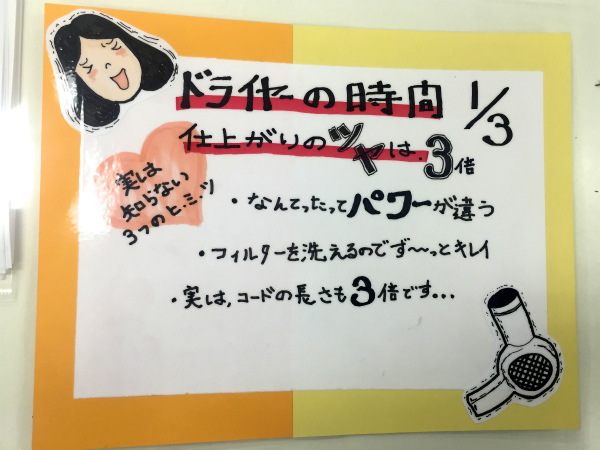 ドライヤーの時間 1/3
仕上がりのツヤは.3倍
実は
知らない
3つのヒ.ミ.ツ
・なんてったってパワーが違う
・フィルターを洗えるのでず〜〜っとキレイ
・実は,コードの長さも3倍です...